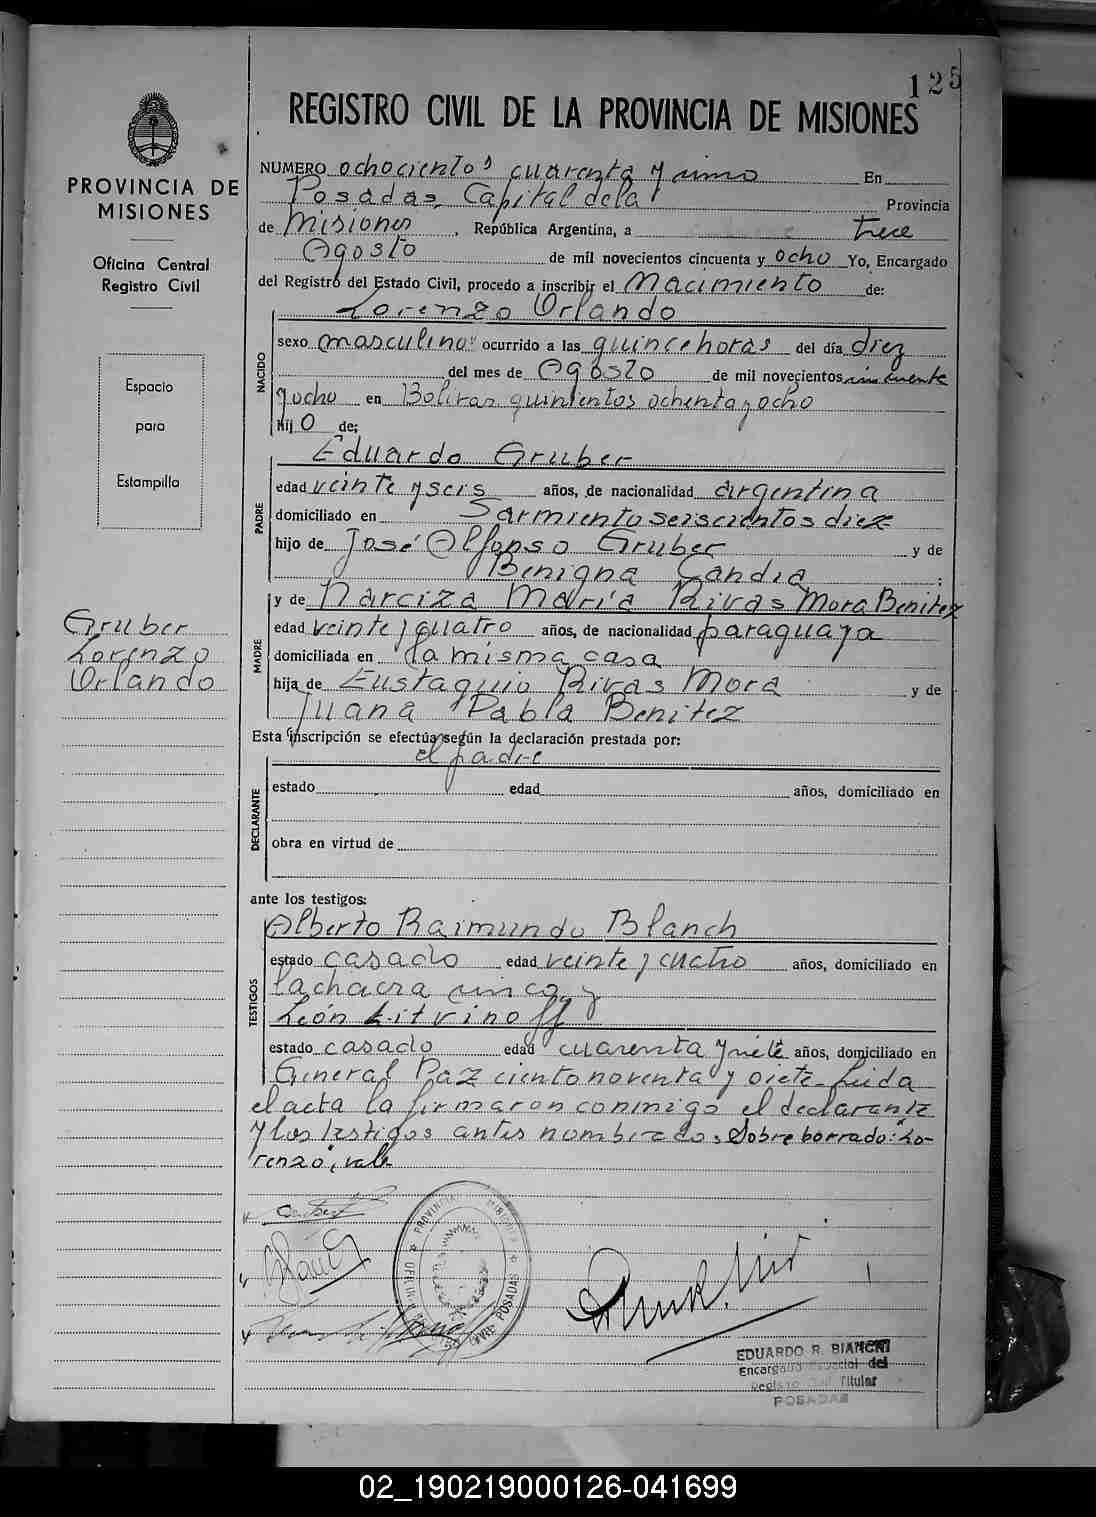 125
REGISTRO CIVIL DE LA PROVINCIA DE MISIONES
PROVINCIA DE
MISIONES
Oficina Central
Registro Civil
Espacio
para
Estampilla
Gruber
Lorenzo
Orlando
NUMERO ochocientos cuarenta y uno En
Posadas, Capital dela Provincia
de Misiones, República Argentina, a trece
Agosto de mil novecientos cincuenta y ocho Yo, Encargado
del Registro del Estado Civil, procedo a inscribir el Nacimiento de:
Lorenzo Orlando
NACIDO
sexo masculino ocurrido a las quince horas del día diez
del mes de Agosto de mil novecientos cincuente
y ocho en Bolivar quinientos ochenta y ocho
Hijo de:
Eduardo Gruber
PADRE
edad veinte y seis años, de nacionalidad argentina
domiciliado en Sarmiento seiscientos diez
hijo de José Alfonso Gruber y de
Benigna Candia ;
y de Narciza María Rivas Mora Benitez
MADRE
edad veinte y cuatro años, de nacionalidad paraguaya
domiciliada en la misma casa
hija de Eustaquio Rivas Mora y de
Juana Pabla Benitez
Esta inscripción se efectúa según la declaración prestada por:
el padre
DECLARANTE
estado edad años, domiciliado en
obra en virtud de
ante los testigos:
Alberto Raimundo Blanch
TESTIGOS
estado casado edad veinte y cuatro años, domiciliado en
la chacra cinco y
León Litvinoff
estado casado edad cuarenta y siete años, domiciliado en
General Paz ciento noventa y siete. Leida
el acta la firmaron conmigo el declarante
y los testigos antes nombrados. Sobre borrado: "Lo-
renzo", vale
PROVINCIA MISIONES
POSADAS
EDUARDO R. BIANCHI
Encargado Especial del
Registro Civil Titular
POSADAS
02_190219000126-041699